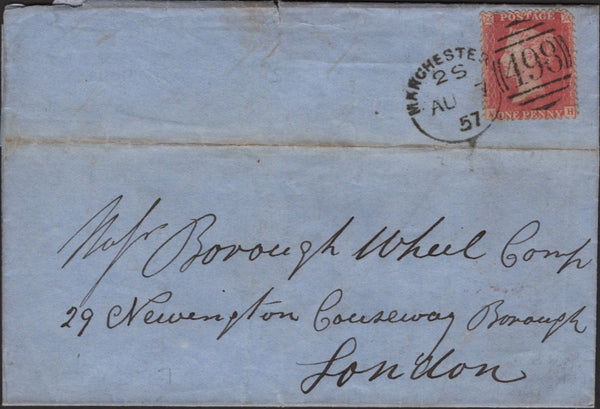 POSTAGE
MANCHESTER
2S
AU 7
57
498
ONE PENNY
H
Messrs Borough Wheel Comp
29 Newington Causeway Borough
London